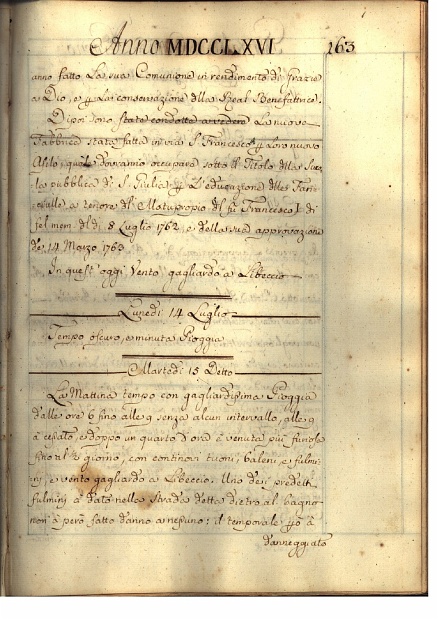 Anno MDCCLXVI 163
anno fatto la sua Comunione in rendimento di grazie
a Dio, e p la conservazione della Real Benefattrice.
Di poi sono state condotte a vedere la nuova
Fabbrica stata fatta in via S. Francesco p loro nuovo
Asilo, quale dovranno occupare sotto il Titolo della Scuo
la pubblica di S. Giulia p L'educazione delle Fanci
ulle a tenore del Motuproprio del fù Francesco I di
fel. mem. del dì 8 Luglio 1762, e della sua approvazione
de 14 Marzo 1763
In quest'oggi Vento gagliardo a Libeccio
Lunedì 14 Luglio
Tempo oscuro, e minuta Pioggia
Martedì 15 Detto
La Mattina tempo con gagliardissima Pioggia
dalle ore 6 fino alle 9 senza alcun intervallo, alle 9
à cessato, e doppo un quarto d'ora è venuta più furiosa
fino al giorno, con continovi tuoni, baleni, e fulmi
ni, e vento gagliardo a Libeccio: Uno dei predetti
fulmini à dato nella Strada detta dietro al bagno
non à però fatto danno a nessuno: il temporale à
danneggiato